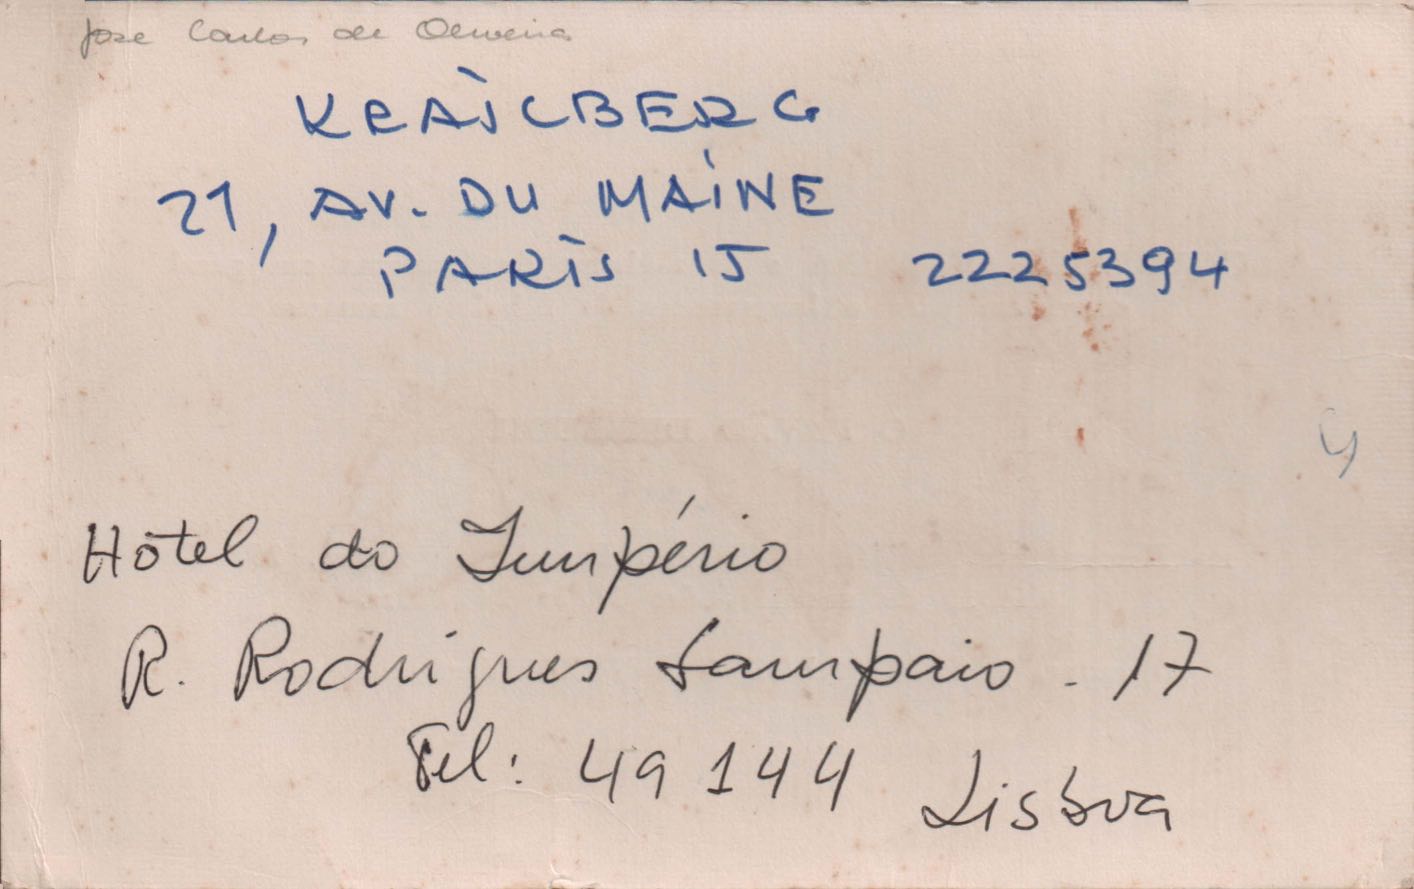 José Carlos de Oliveira
KRAJCBERG
21, AV. DU MAINE
PARIS 15 2225394
Hôtel do Império
R. Rodrigues Sampaio . 17
Tel: 49 144 Lisboa